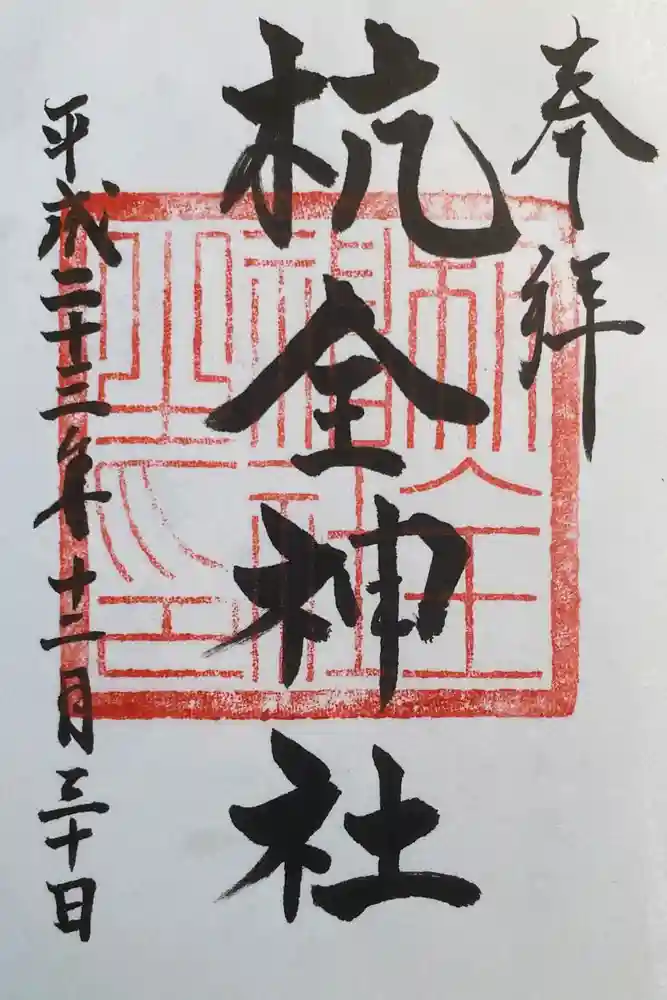 奉拜
杭全神社
平成二十三年十二月三十日
杭全神社之印